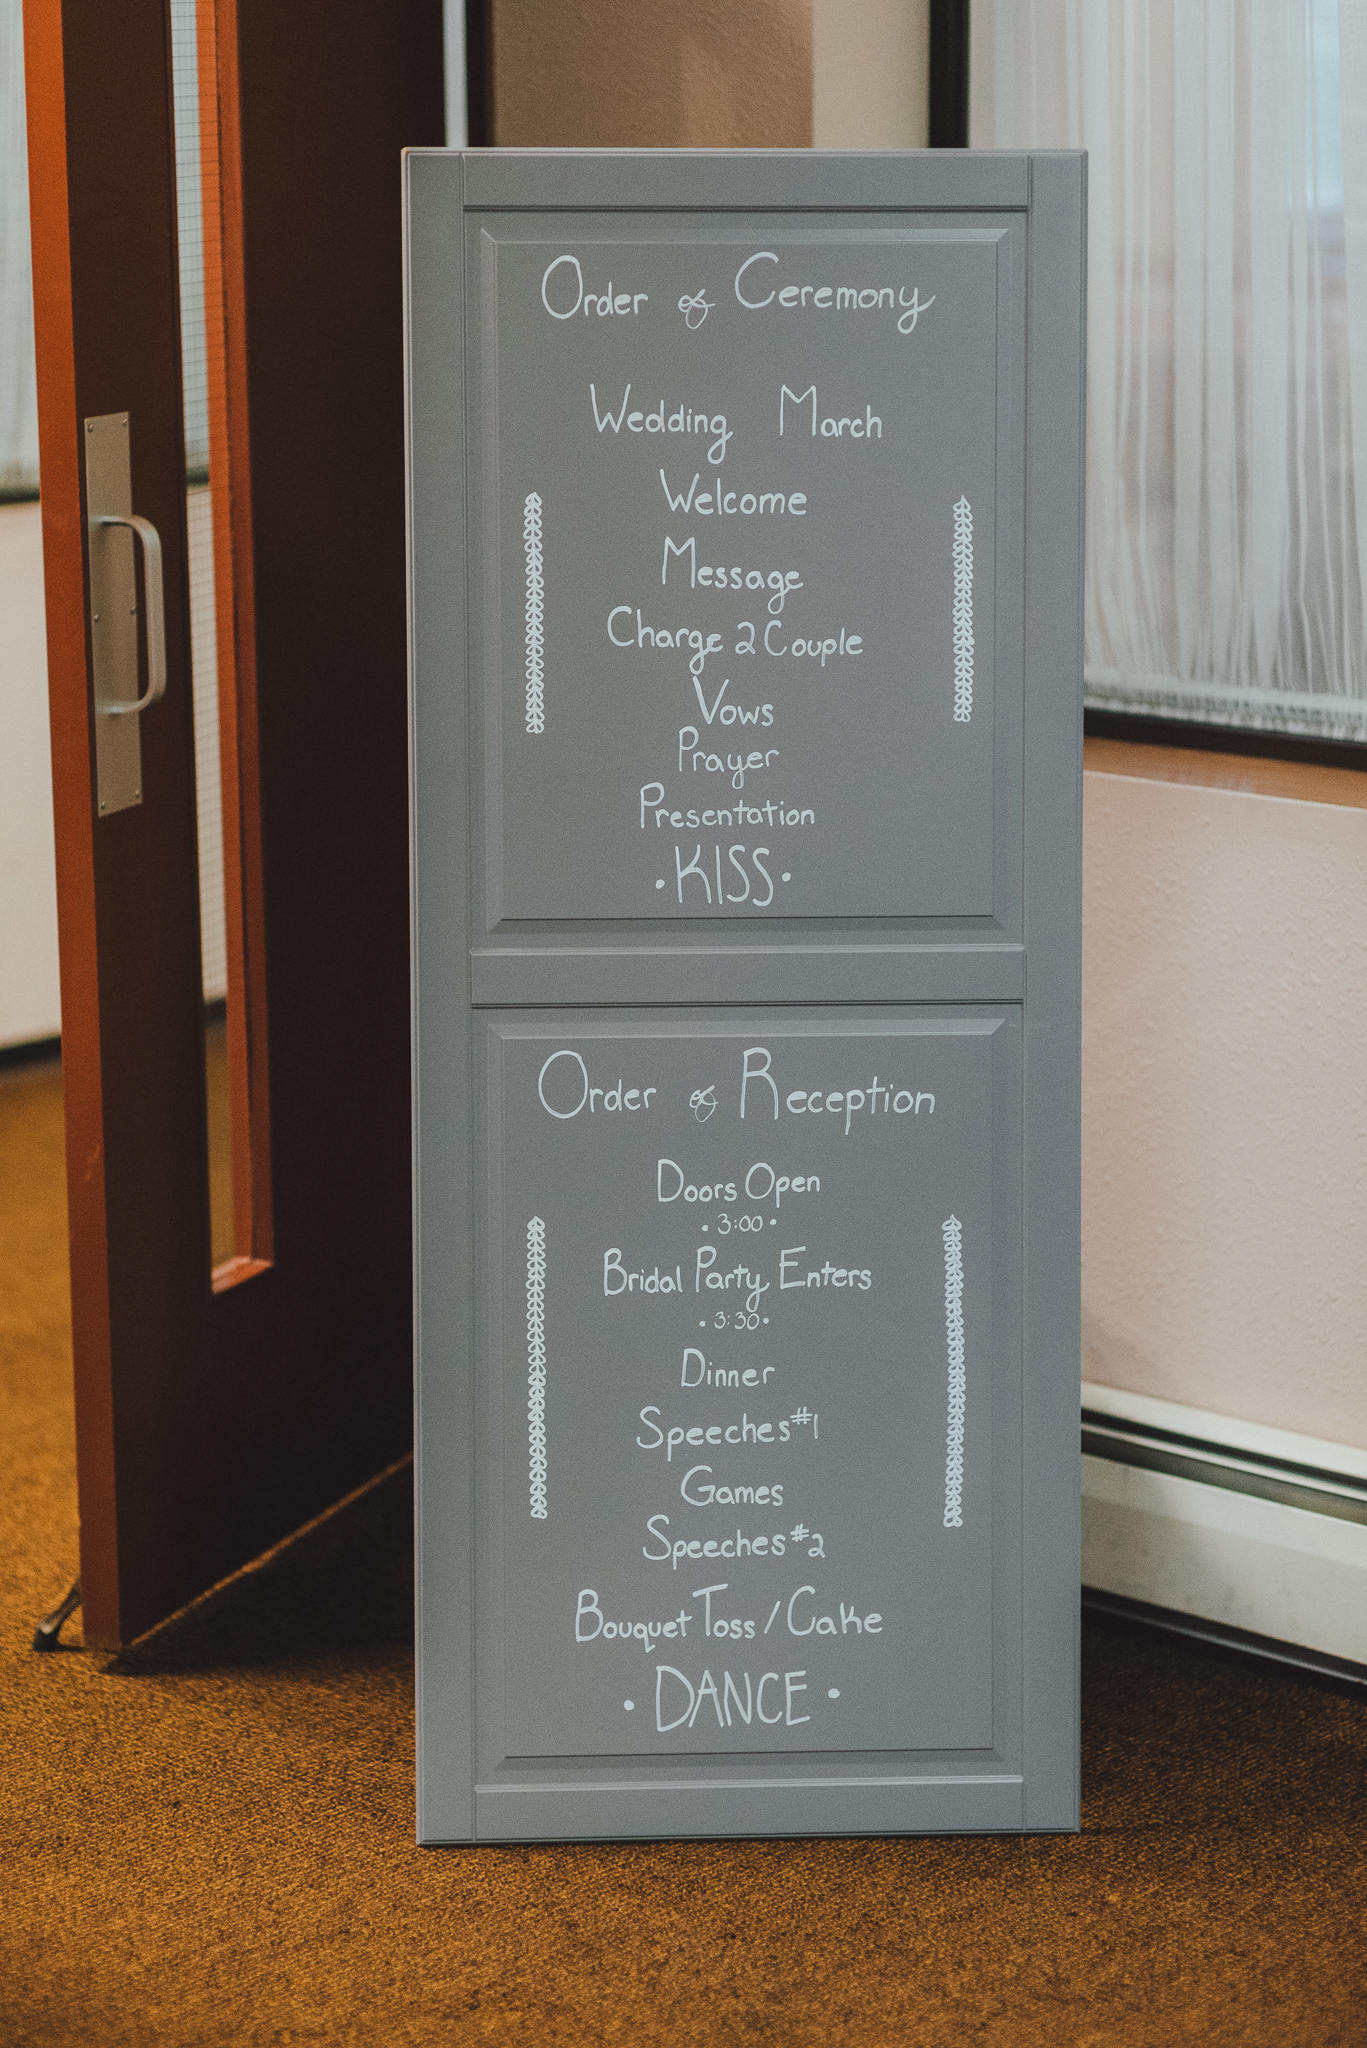 Order of Ceremony
Wedding March
Welcome
Message
Charge 2 Couple
Vows
Prayer
Presentation
• KISS •
Order of Reception
Doors Open
• 3:00 •
Bridal Party Enters
• 3:30 •
Dinner
Speeches #1
Games
Speeches #2
Bouquet Toss / Cake
• DANCE •